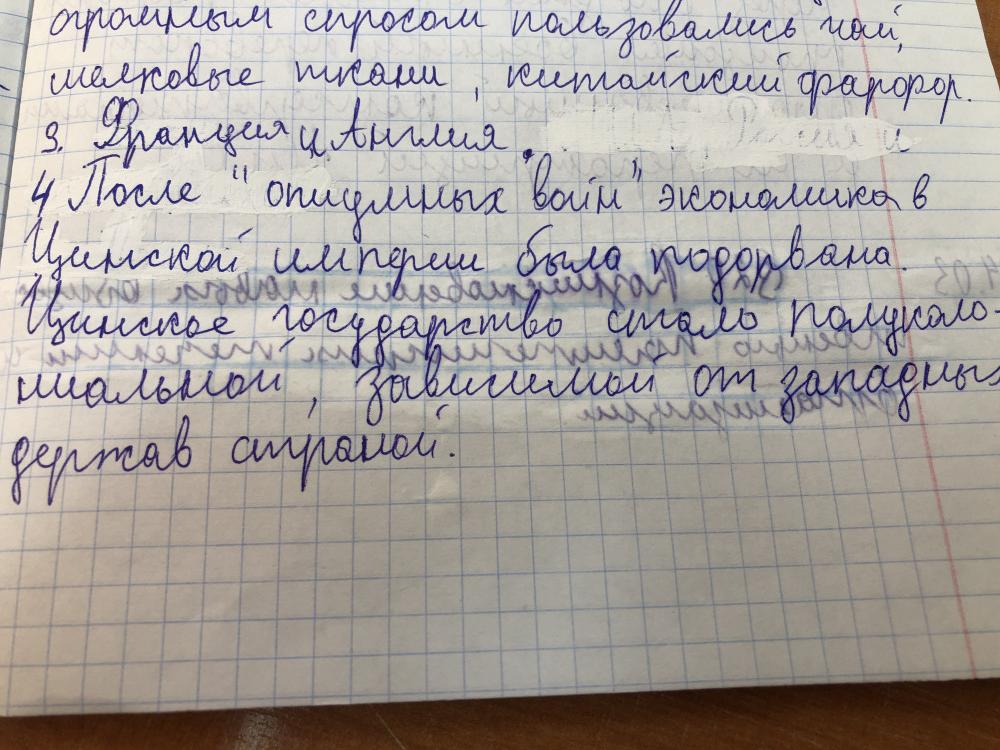 огромным спросом пользовались чай,
шелковые ткани, китайский фарфор.
3. Франция и Англия.
4 После "опиумных войн" экономика в
Цинской империи была подорвана.
Цинское государство стало полуколо-
ниальной, зависимой от западных
держав страной.